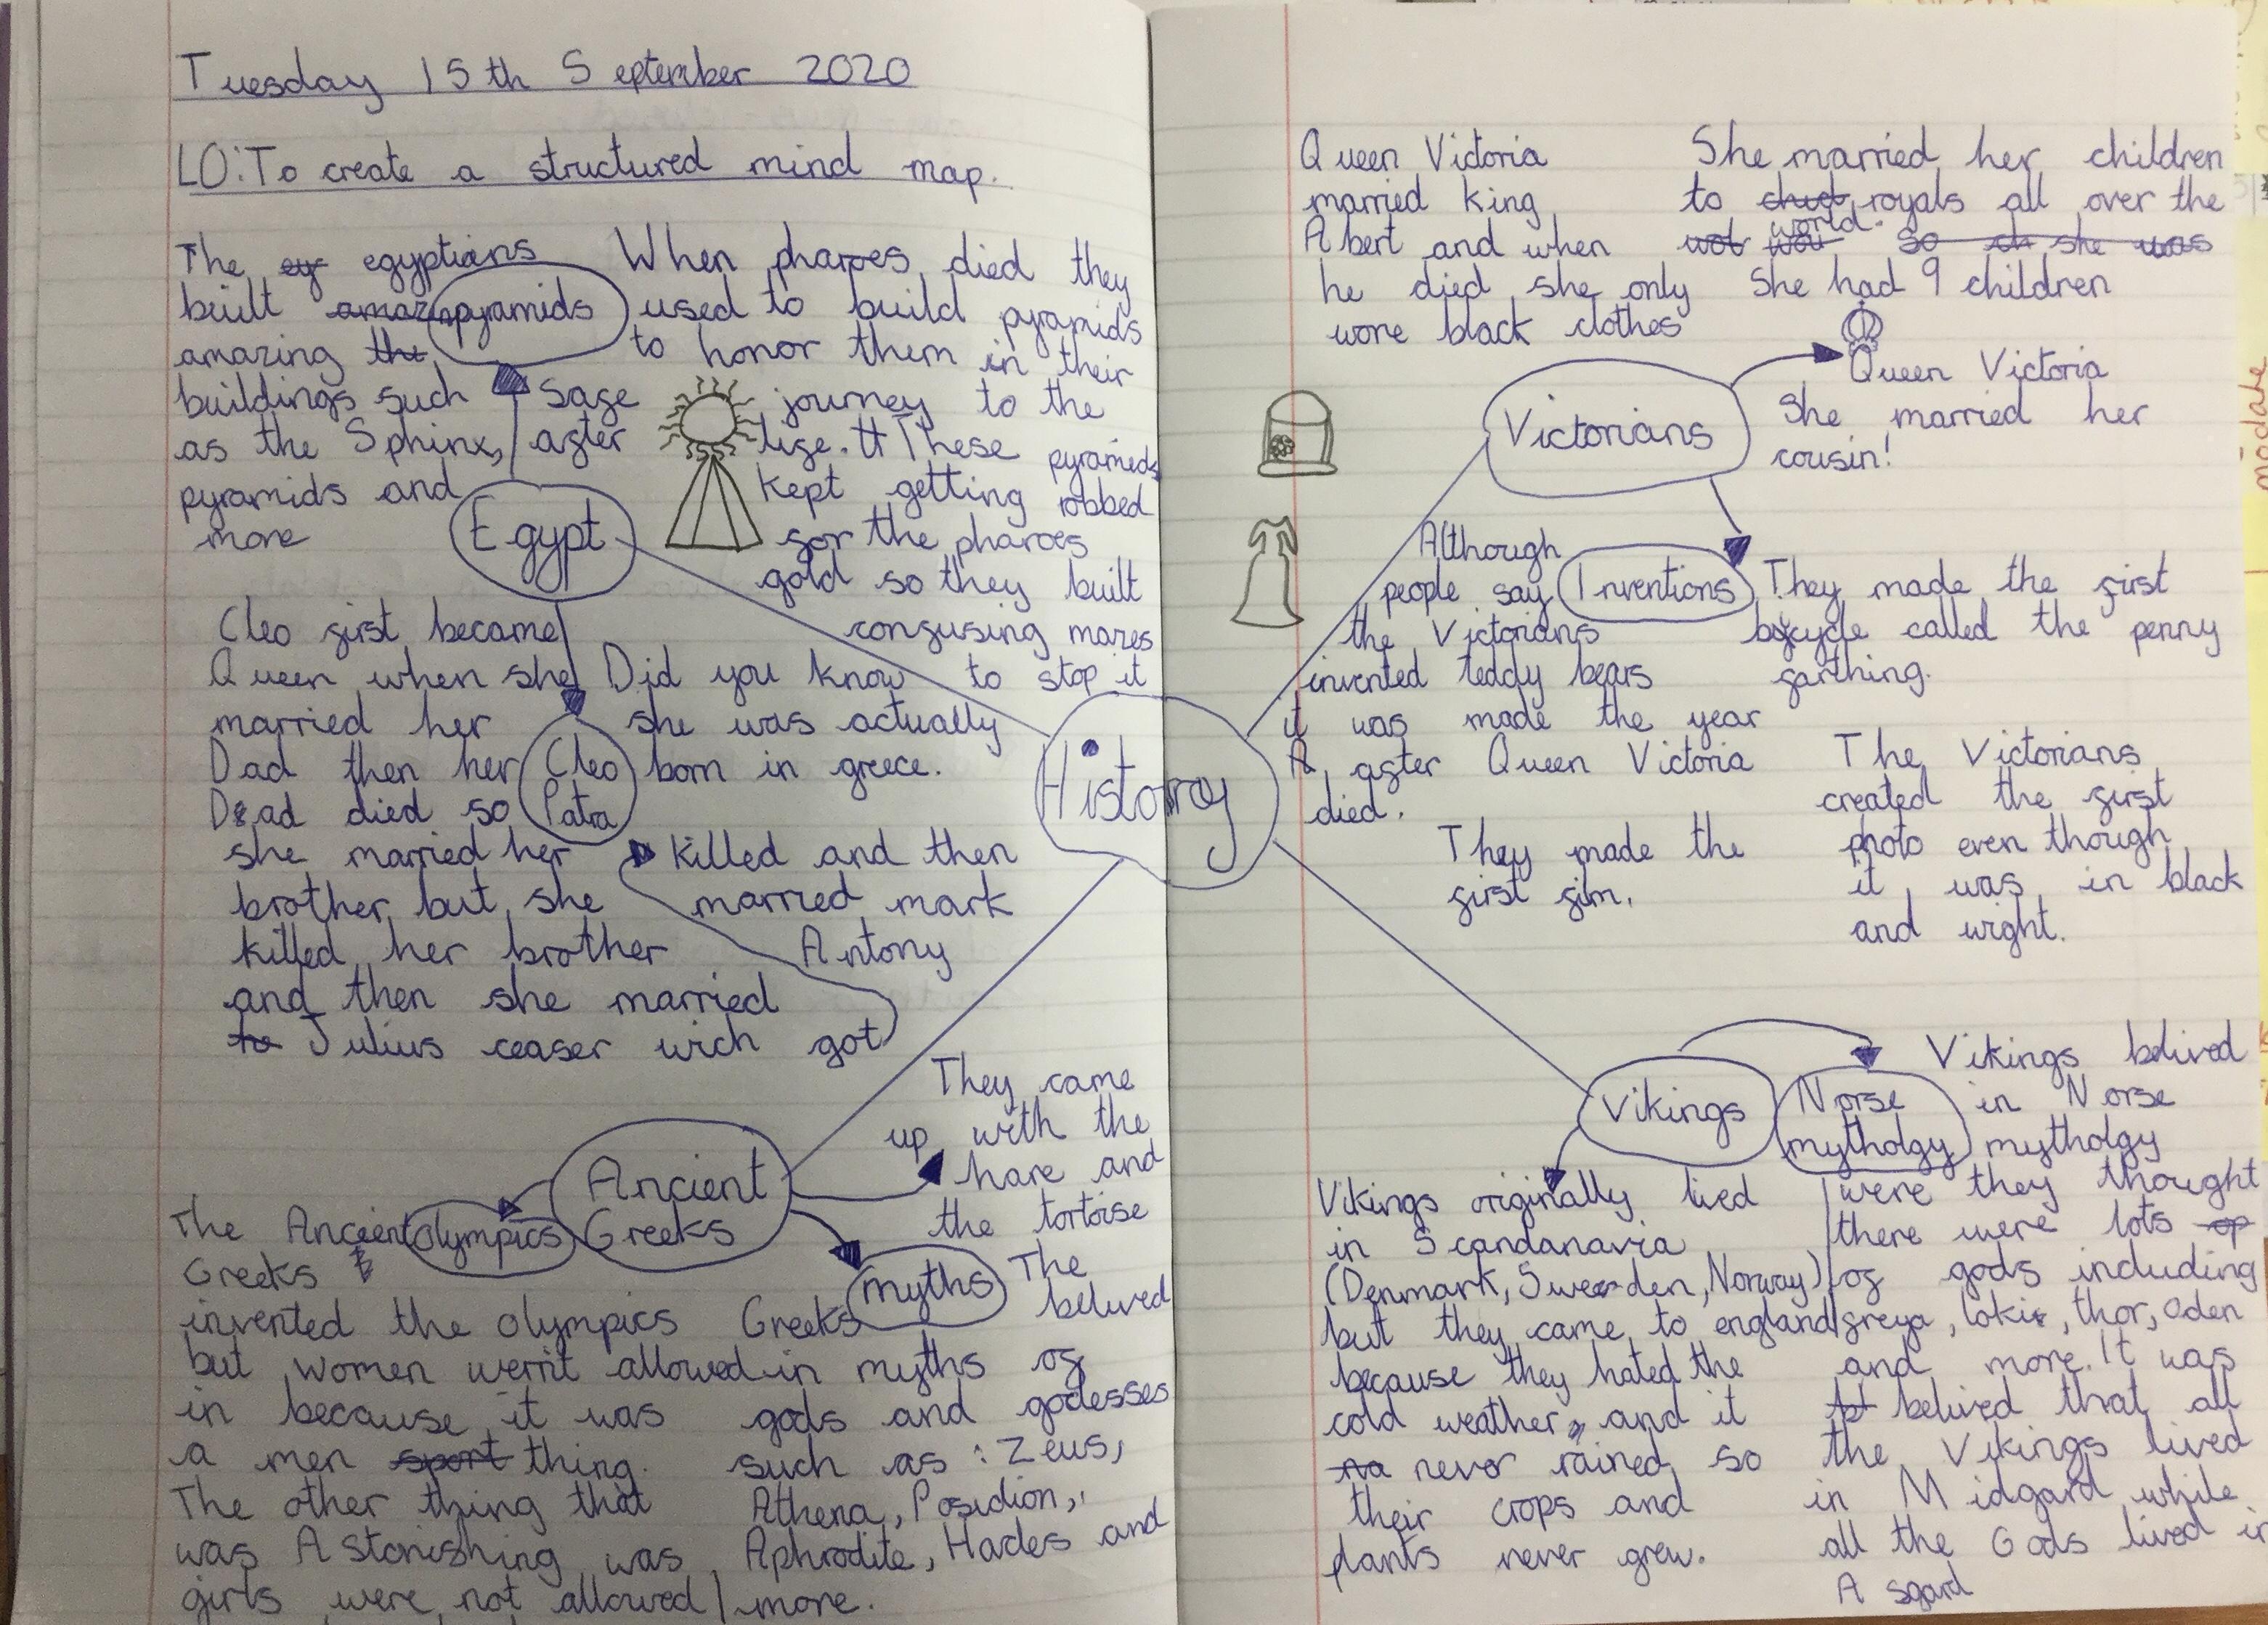 Tuesday 15th September 2020
LO: To create a structured mind map.
The egyptians
built
amazing
buildings such
as the Sphinx,
pyramids and
more
pyramids
When pharoes died they
used to build pyramids
to honor them in their
safe journey to the
after life. These pyramids
kept getting robbed
for the pharoes
gold so they built
confusing mazes
to stop it
Egypt
Cleo first became
Queen when she
married her
Dad then her
Dad died so
she married her
brother but she
killed her brother
and then she married
Julius ceaser wich got
killed and then
married mark
Antony
Cleo
Patra
Did you know
she was actually
born in greece.
History
Ancient
Greeks
They came
up with the
hare and
the tortoise
olympics
The Ancient
Greeks
invented the olympics
but women wern't allowed
in because it was
a men thing.
The other thing that
was Astonishing was
girls were not allowed
myths
The
Greeks belived
in myths of
gods and godesses
such as: Zeus,
Athena, Posidion,
Aphrodite, Hades and
more.
Queen Victoria
married King
Abert and when
he died she only
wore black clothes
She married her children
to royals all over the
world.
She had 9 children
Victorians
Queen Victoria
She married her
cousin!
Inventions
Although
people say
the Victorians
invented teddy bears
it was made the year
after Queen Victoria
died.
They made the first
bicycle called the penny
farthing.
They made the
first fim.
The Victorians
created the first
photo even though
it was in black
and wight.
Vikings
Norse
mytholgy
Vikings originally lived
in Scandanavia
(Denmark, Sweden, Norway)
but they came to england
because they hated the
cold weather, and it
never rained so
their crops and
plants never grew.
Vikings belived
in Norse
mytholgy
were they thought
there were lots
of gods including
freya, loki, thor, Oden
and more. It was
belived that all
the Vikings lived
in Midgard while
all the Gods lived in
Asgard